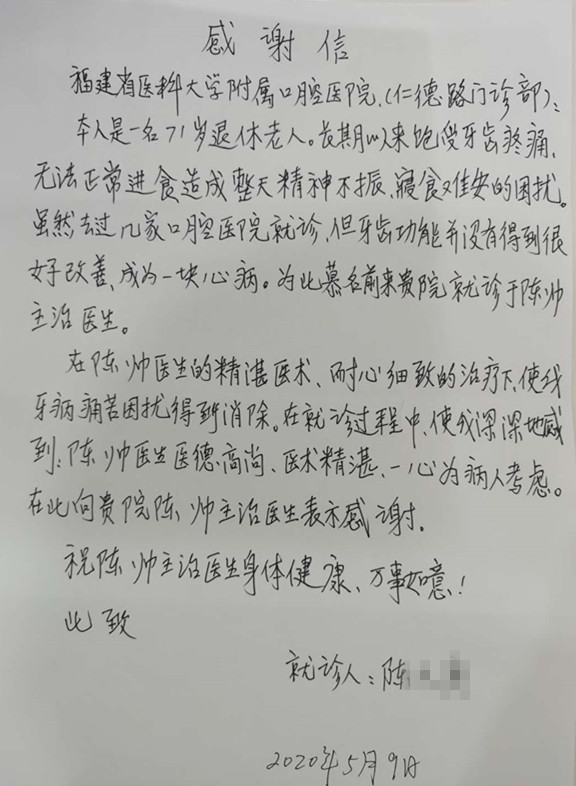 感谢信
福建省医科大学附属口腔医院,(仁德路门诊部):
本人是一名71岁退休老人。长期以来饱受牙齿疼痛,
无法正常进食造成整天精神不振、寝食难安的困扰。
虽然去过几家口腔医院就诊,但牙齿功能并没有得到很
好改善,成为一块心病。为此慕名前来贵院就诊于陈帅
主治医生。
在陈帅医生的精湛医术、耐心细致的治疗下,使我
牙病痛苦困扰得到消除。在就诊过程中,使我深深地感
到:陈帅医生医德高尚、医术精湛、一心为病人考虑。
在此向贵院陈帅主治医生表示感谢!
祝陈帅主治医生身体健康、万事如意!
此致
就诊人:陈
2020年5月9日